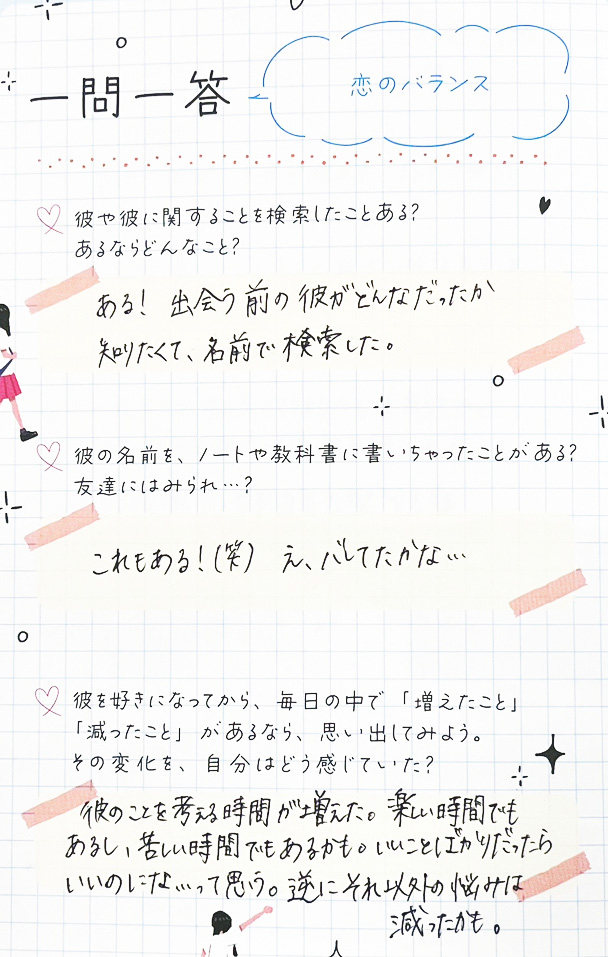 一問一答
恋のバランス
彼や彼に関することを検索したことある?
あるならどんなこと?
ある! 出会う前の彼がどんなだったか
知りたくて、名前で検索した。
彼の名前を、ノートや教科書に書いちゃったことがある?
友達にはみられ…?
これもある!(笑) え、バレてたかな…
彼を好きになってから、毎日の中で「増えたこと」
「減ったこと」があるなら、思い出してみよう。
その変化を、自分はどう感じていた?
彼のことを考える時間が増えた。楽しい時間でも
あるし、苦しい時間でもあるかも。いいことばかりだったら
いいのにな…って思う。逆にそれ以外の悩みは
減ったかも。